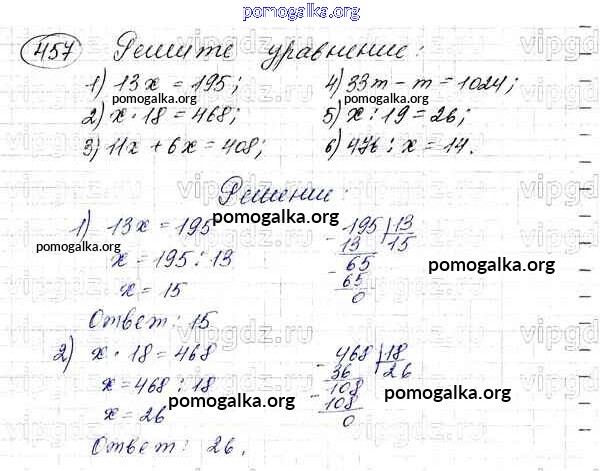 pomogalka.org
457 Решите уравнение:
1) 13x = 195; 4) 33m - m = 1024;
pomogalka.org pomogalka.org
2) x · 18 = 468; 5) x : 19 = 26;
3) 11x + 6x = 408; 6) 476 : x = 14.
pomogalka.org pomogalka.org
Решение:
1) 13x = 195 pomogalka.org 195 | 13
pomogalka.org - 13 15
x = 195 : 13 65 pomogalka.org
x = 15 - 65
0
Ответ: 15
2) x · 18 = 468 468 | 18
- 36 26
x = 468 : 18 108
pomogalka.org - 108 pomogalka.org
x = 26 0
Ответ: 26.
vipgdz.ru